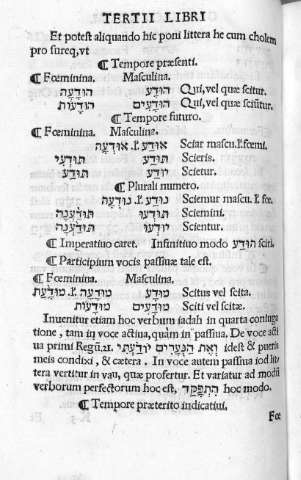 TERTII LIBRI
Et potest aliquando hic poni littera he cum cholem
pro sureq, vt
¶ Tempore præsenti.
¶ Fœminina. Masculina.
הודַעַת הודַע Qui, vel quæ scitur.
הודָעות הודָעִים Qui, vel quæ sciũtur.
¶ Tempore futuro.
¶ Fœminina. Masculina.
אוּדַע .l. אִוּדַע Sciar mascu. l. fœmi.
תוּדְעִי תוּדַע Scieris.
תוּדַע יוּדַע Scietur.
¶ Plurali numero.
נוּדַע .l. נִוּדַע Sciemur mascu. l. fœ.
תוּדַעְנָה תוּדְעוּ Sciemini.
תוּדַעְנָה יוּדְעוּ Scientur.
¶ Imperatiuo caret. Infinitiuo modo הוּדַע sciri.
¶ Participium vocis passiuæ tale est.
¶ Fœminina. Masculina.
מוּדַעַת .l. מוּדָעָה מוּדַע Scitus vel scita.
מוּדָעות מוּדָעִים Sciti vel scitæ.
Inuenitur etiam hoc verbum iadah in quarta coniuga
tione, tam in voce actiua, quàm in passiua. De voce acti
ua primi Regũ. 21. וְאֶת הַנְּעָרִים יוֹדַעְתִּי idest & pueris
meis condixi, & cætera. In voce autem passiua iod lit
tera vertitur in vau, quæ profertur. Et variatur ad modũ
verborum perfectorum hoc est, הִתְפַּקֵד hoc modo.
¶ Tempore præterito indicatiui.
Fœ